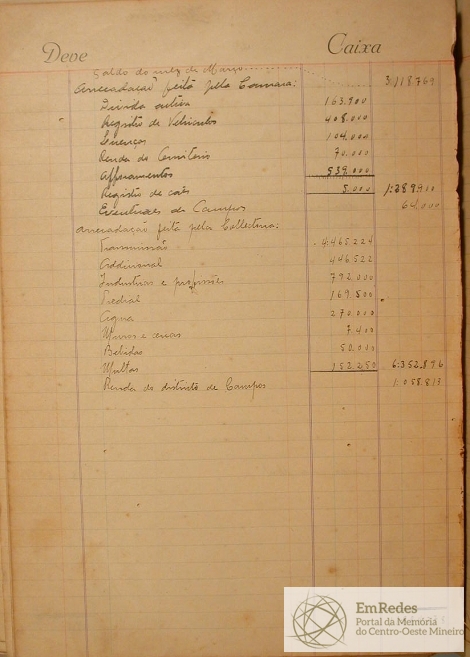 Deve Caixa
Saldo do mez de Março 3:118.769
Arrecadação feita pela Camara:
Divida activa 163.900
Registro de Vehiculos 408.000
Licenças 104.000
Renda do Cemiterio 70.000
Afforamentos 539.000
Registro de cães 5.000 1:289.910
Eventuaes de Campos 64.000
Arrecadação feita pela Collectoria:
Transmissão 4:465.224
Addicional 446.522
Industrias e profissões 792.000
Predial 169.500
Agua 270.000
Muros e 7.400
Bebidas 50.000
Multas 152.250 6:352.896
Renda do districto de Campos 1:058.813
EmRedes
Portal da Memória
do Centro-Oeste Mineiro